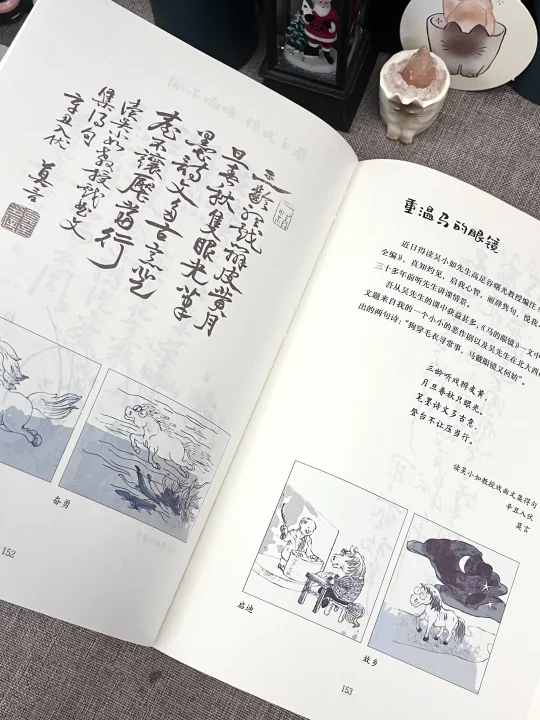 三齡聽戲辨皮黄月
旦春秋隻眼光筆
墨詩文多古意登
臺不讓壓當行
读吴小如教授戏曲文
集得句
辛丑入伏 莫言
奋勇
152
重温马的眼镜
近日得读吴小如先生高足谷曙光教授编住《
全编》，真知灼见，启我心智，丽辞隽句，悦我
三十多年前听先生讲课情景。
吾从吴先生的课中获益甚多，《马的眼镜》一文中
文题来自我的一个小小的恶作剧以及吴先生在北大西
出的两句诗：“狗穿毛衣寻常事，马戴眼镜又何妨”。
三龄听戏辨皮黄，
月旦春秋只眼光。
笔墨诗文多古意，
登台不让压当行。
读吴小如教授戏曲文集得句
辛丑入伏
莫言
启迪
故乡
153